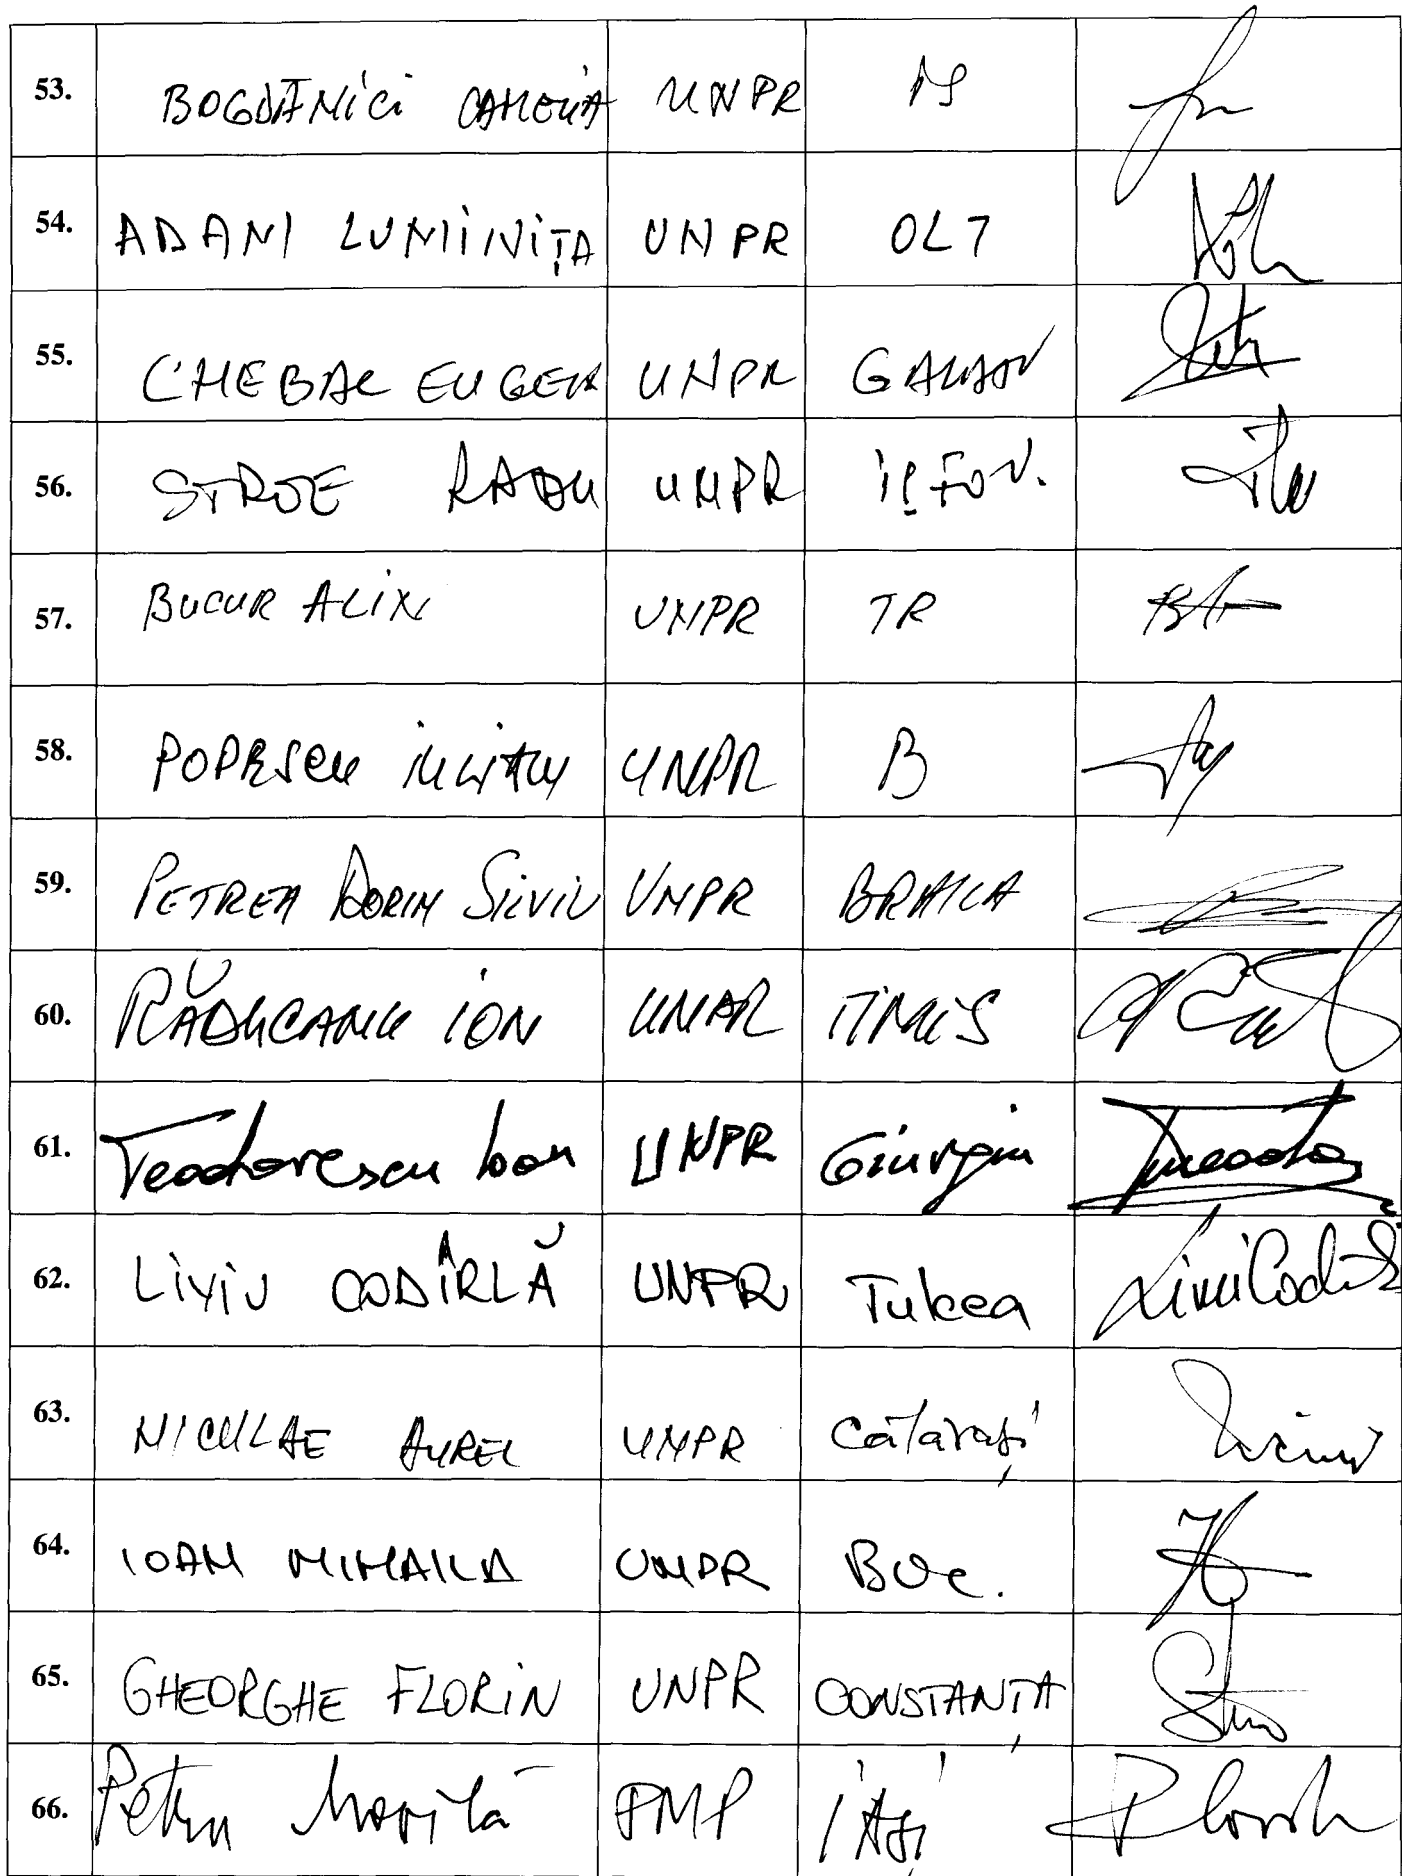 53. BOGDĂNICI CAMELIA UNPR IS
54. ADAM LUMINIȚA UNPR OLT
55. CHEBAC EUGEN UNPR GALAȚI
56. STROE RADU UNPR ILFOV.
57. BUCUR ALIN UNPR TR
58. POPESCU UNPR B
59. PETREA DORIN SILVIU UNPR BRAILA
60. RĂDUCANU ION UNPR TIMIS
61. Teodorescu Ioan UNPR Giurgiu
62. LIVIU CODÎRLĂ UNPR Tulcea
63. NICULAE AUREL UNPR Călărași
64. IOAN MIHAILA UNPR BUC.
65. GHEORGHE FLORIN UNPR CONSTANȚA
66. Petru Movilă PMP IAȘI